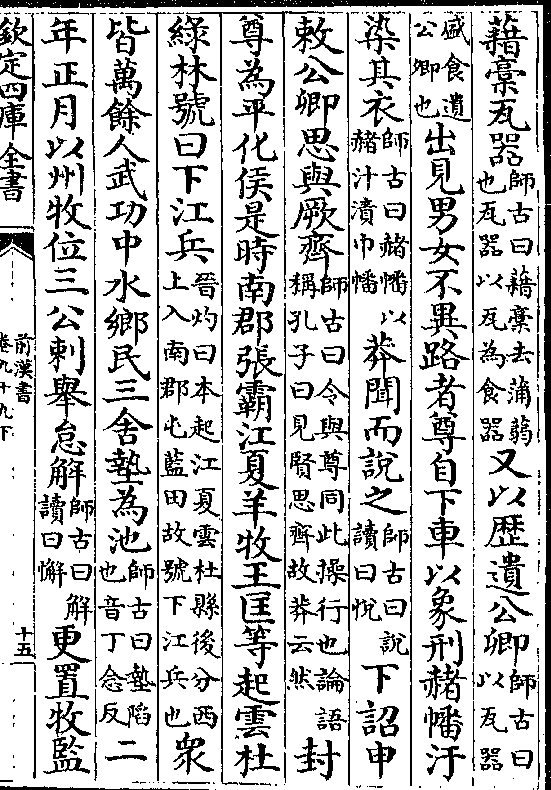 藉槀瓦器師古曰藉槀去蒲蒻也瓦器以瓦為食器又以歴遺公卿師古曰以瓦器
盛食遺公卿也出見男女不異路者尊自下車以象刑赭幡汙
染其衣師古曰赭幡以赭汁漬巾幡莽聞而說之師古曰說讀曰悅下詔申
敕公卿思與厥齊師古曰令與尊同此操行也論語稱孔子曰見賢思齊故莽云然封
尊為平化侯是時南郡張霸江夏羊牧王匡等起雲杜
綠林號曰下江兵晉灼曰本起江夏雲杜縣後分西上入南郡屯藍田故號下江兵也衆
皆萬餘人武功中水鄉民三舍墊為池師古曰墊陷也音丁念反二
年正月以州牧位三公刺舉怠解師古曰解讀曰懈更置牧監
欽定四庫全書
前漢書
卷九十九下
十五